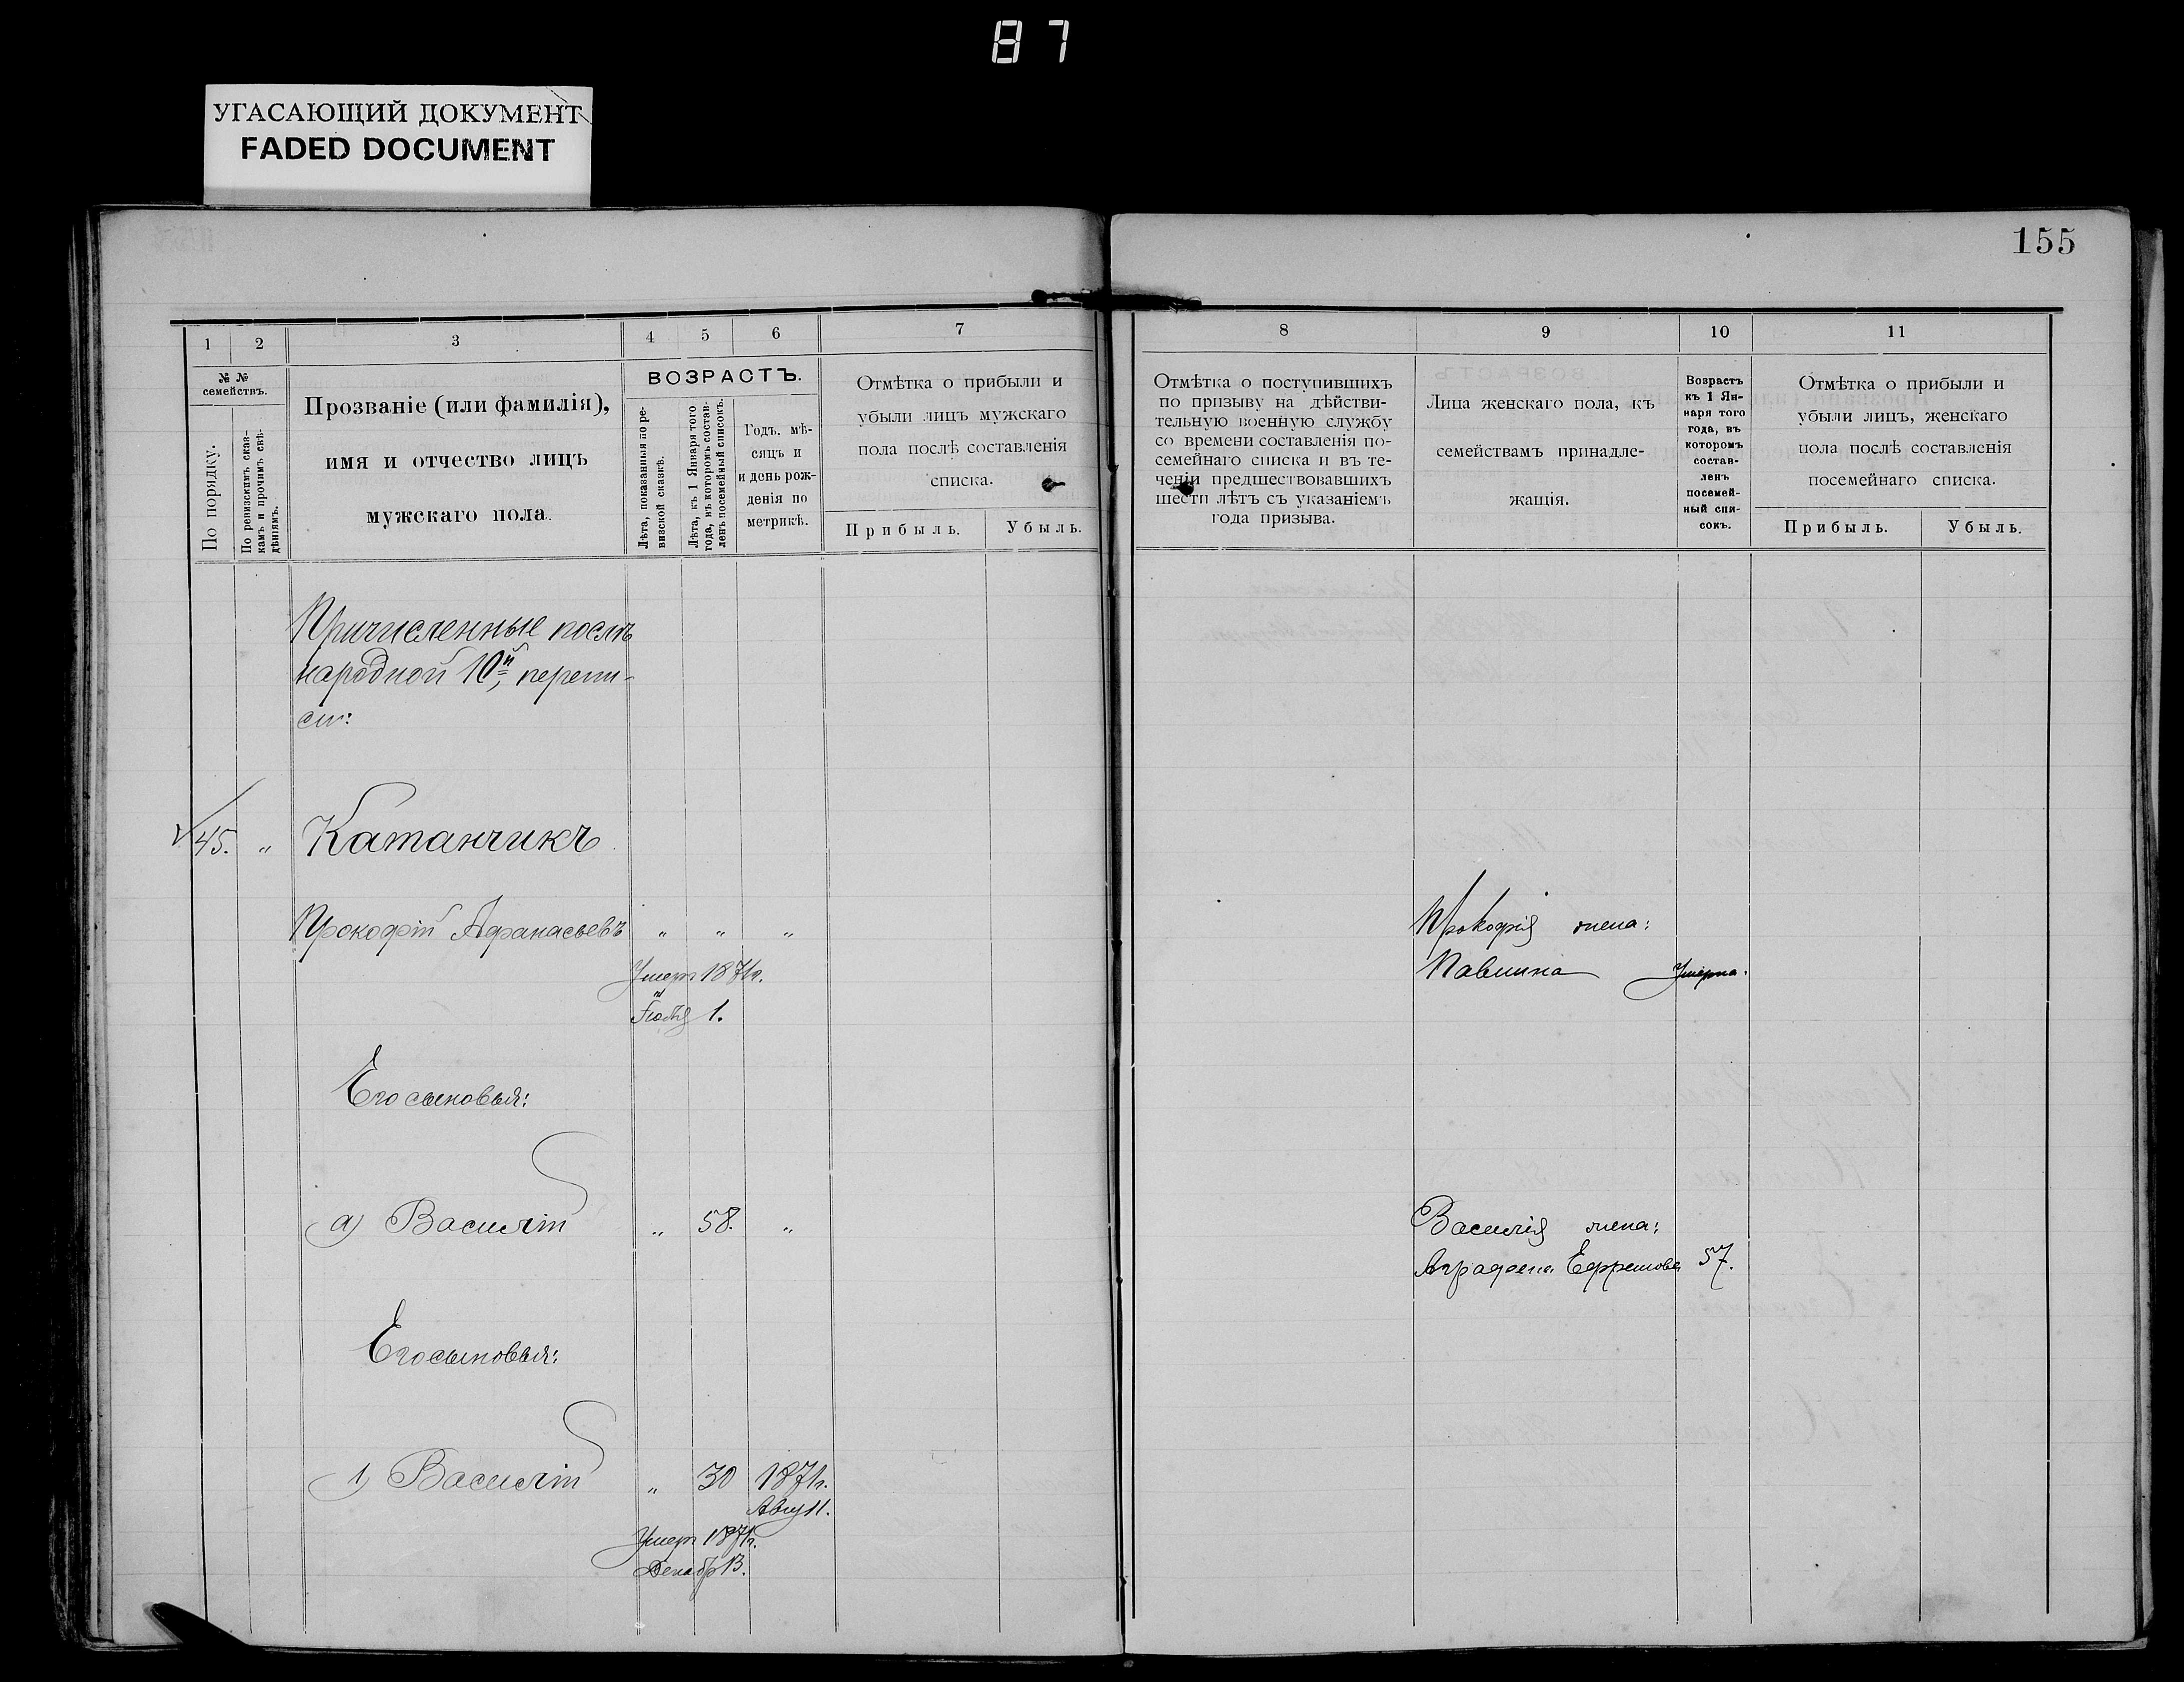 87
УГАСАЮЩИЙ ДОКУМЕНТ
FADED DOCUMENT
155
1 2 3 4 5 6 7
№ №
семействъ.
По порядку.
По ревизскимъ сказ-
камъ и прочимъ свѣ-
дѣніямъ.
Прозваніе (или фамилія),
имя и отчество лицъ
мужскаго пола.
ВОЗРАСТЪ.
Лѣта, показанныя по ре-
визской сказкѣ.
Лѣта, къ 1 Января того
года, въ которомъ состав-
ленъ посемейный списокъ.
Годъ, мѣ-
сяцъ и
и день рож-
денія по
метрикѣ.
Отмѣтка о прибыли и
убыли лицъ мужскаго
пола послѣ составленія
списка.
Прибыль. Убыль.
8 9 10 11
Отмѣтка о поступившихъ
по призыву на дѣйстви-
тельную военную службу
со времени составленія по-
семейнаго списка и въ те-
ченіи предшествовавшихъ
шести лѣтъ съ указаніемъ
года призыва.
Лица женскаго пола, къ
семействамъ принадле-
жащія.
Возрастъ
къ 1 Ян-
варя того
года, въ
которомъ
состав-
ленъ
посемей-
ный спи-
сокъ.
Отмѣтка о прибыли и
убыли лицъ, женскаго
пола послѣ составленія
посемейнаго списка.
Прибыль. Убыль.
Причисленные послѣ
народной 10й, перепи-
си:
45. „ Катанчикъ
Прокофій Афанасьевъ „ „ „
Умеръ 1871г.
Іюля 1.
Прокофія жена:
Умерла.
Его сыновья:
а) Василій „ 58. „
Василія жена:
Аграфена Ефремова 57.
Его сыновья:
1) Василій „ 30 1871г.
Авгу 11.
Умеръ 1871г.
Декабр 13.